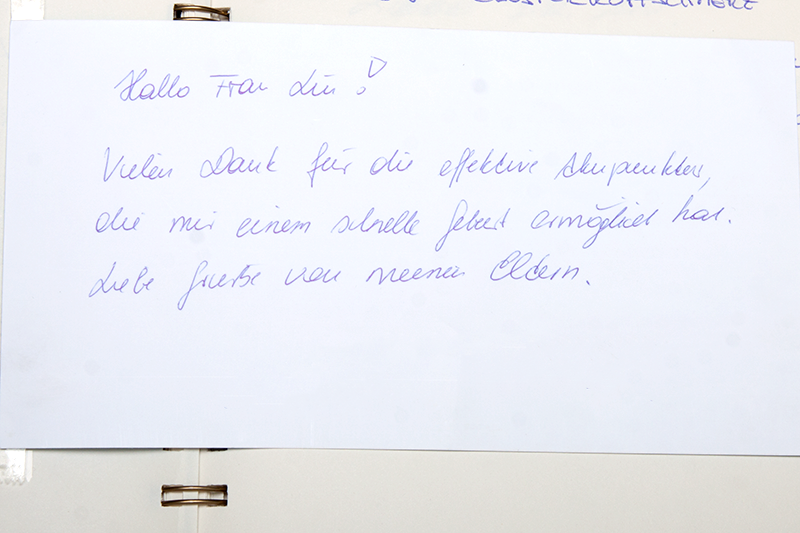 CLUSTERKOPFSCHMERZ
Hallo Frau Lin!
Vielen Dank für die effektive Akupunktur,
die mir einem schnelle Geburt ermöglicht hat.
Liebe Grüße von meinen Eltern.